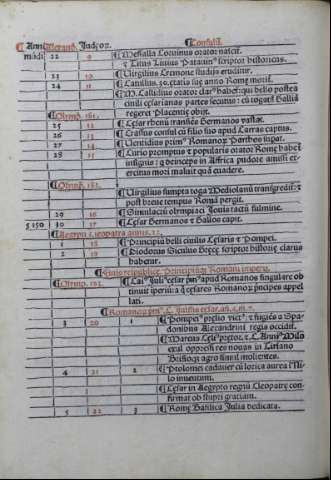 Anni Alexand. Judeorum Consulū.
mūdi 22 9 Messalla Coruinus orator nascit.
Titus Liuius Patauin⁹ scriptor historicus.
23 10 Virgilius Cremone studiis eruditur.
24 11 Catullus 30. etatis sue anno Rome morit.
M. Callidius orator clar⁹ habet̄ qui bello postea
ciuili cesarianas partes secutus: cū togatā Galliā
regeret Placentie obijt.
Olymp. 181.
25 12 Cesar rhenū transiēs Germanos vastat.
26 13 Crassus consul cū filio suo apud Carras captus.
27 14 Uentidius prim⁹ Romanoꝝ Parthos supat.
28 15 Curio promptus & popularis orator Rome habet̄
insignis: q deinceps in Affrica pudore amissi ex-
ercitus mori maluit quā euadere.
Olymp. 182.
Virgilius sumpta toga Mediolanū transgredit̄: &
post breue tempus Romā pergit.
29 16 Simulachrū olympiaci Jouis tactū fulmine.
5150 30 17 Cesar Germanos & Gallos capit.
Aegypti Cleopatra annis. 22.
1 18 Principiū belli ciuilis Cesaris & Pompei.
2 19 Diodorus Siculus Grece scriptor historie clarus
habetur.
Finis reipublice. Principiūq̄ Romani imperii.
Olymp. 183. Cai⁹ Juli⁹ cesar prim⁹ apud Romanos singulare ob-
tinuit imperiū: a q̄ cesares Romanoꝝ prīcipes appel-
lati.
Romanoꝝ prim⁹ C. Julius cesar. añ. 4. m. 7.
3 20 1 Pompei⁹ prelio vict⁹: & fugiēs a Spa-
donibus Alexandrini regis occidit̄.
Marcus Celi⁹ pretor, & T. Anni⁹ Milo
exul oppressi res nouas in
agro simul molientes.
4 21 2 Ptolomei cadauer cū lorica aurea ī Ni-
lo inuentum.
Cesar in Aegypto regnū Cleopatre con-
firmat ob stupri gratiam.
5 22 3 Rome Basilica Julia dedicata.